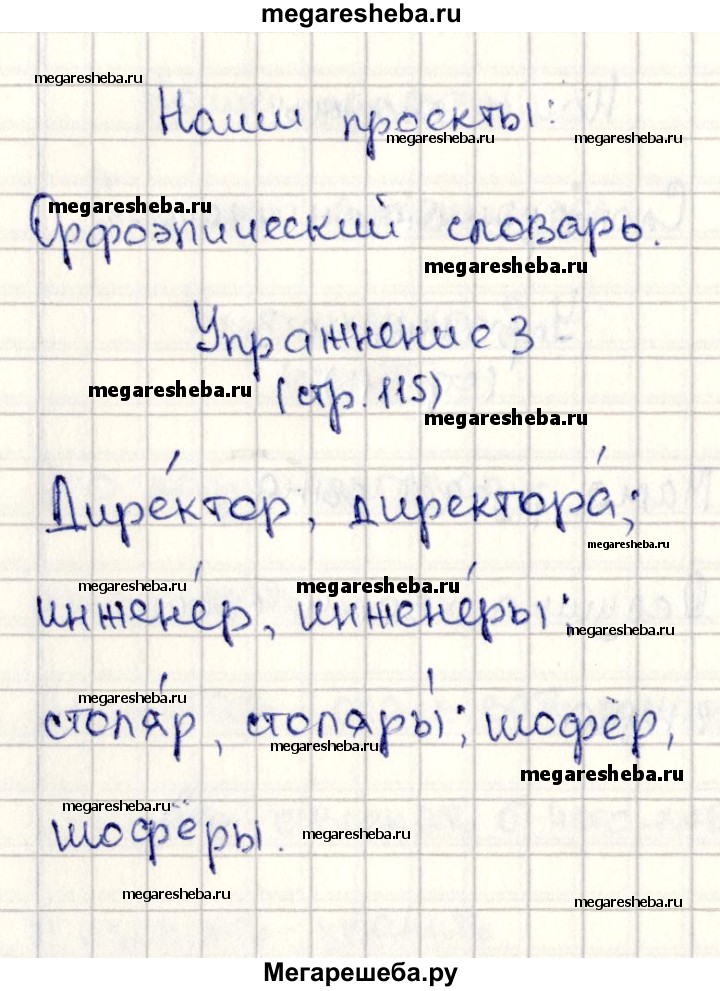 megaresheba.ru
megaresheba.ru
Наши проекты:
megaresheba.ru megaresheba.ru
megaresheba.ru
Орфоэпический словарь.
megaresheba.ru
Упражнение 3
megaresheba.ru (стр. 115)
megaresheba.ru
Дире́ктор, директора́;
megaresheba.ru
megaresheba.ru megaresheba.ru
инжене́р, инжене́ры;
megaresheba.ru
megaresheba.ru
столя́р, столяры́; шофёр,
megaresheba.ru
megaresheba.ru
megaresheba.ru
шофёры.
megaresheba.ru
megaresheba.ru
megaresheba.ru
Мегарешеба.ру